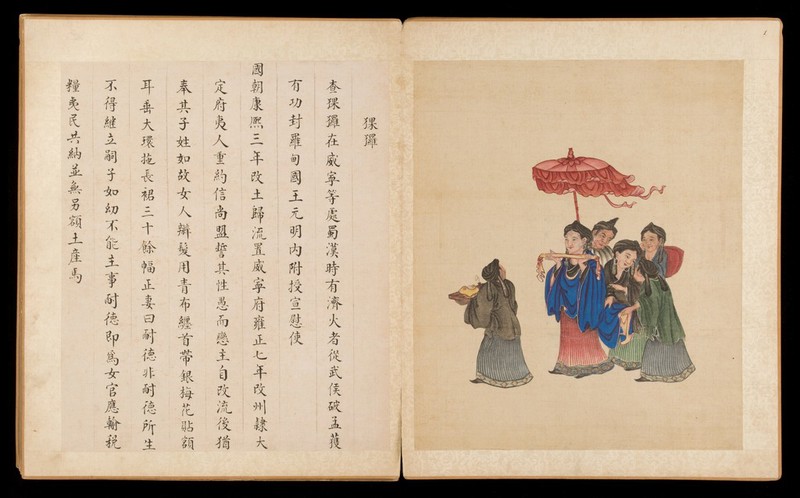 猓玀
查猓玀在威寧等處蜀漢時有濟火者從武侯破孟獲
有功封羅甸國王元明內附授宣慰使
國朝康熙三年改土歸流置威寧府雍正七年改州隸大
定府夷人重約信尚盟誓其性愚而戀主自改流後猶
奉其子姓如故女人辮髮用青布纏首帶銀梅花貼額
耳垂大環拖長裙三十餘幅正妻曰耐德非耐德所生
不得繼立嗣子如幼不能主事耐德即爲女官應輸稅
糧夷民共納並無另額土產馬